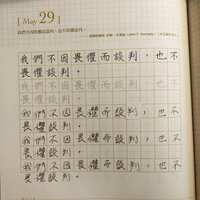 [ May 29 ]
我們不因畏懼而談判，也不畏懼談判。
我們不因畏懼而談判，也不
畏懼談判。
我們不因畏懼而談判，也不
畏懼談判。
我們不因畏懼而談判，也不
畏懼談判。
我們不因畏懼而談判，也不
畏懼談判。
我們不因畏懼而談判，也不
畏懼談判。